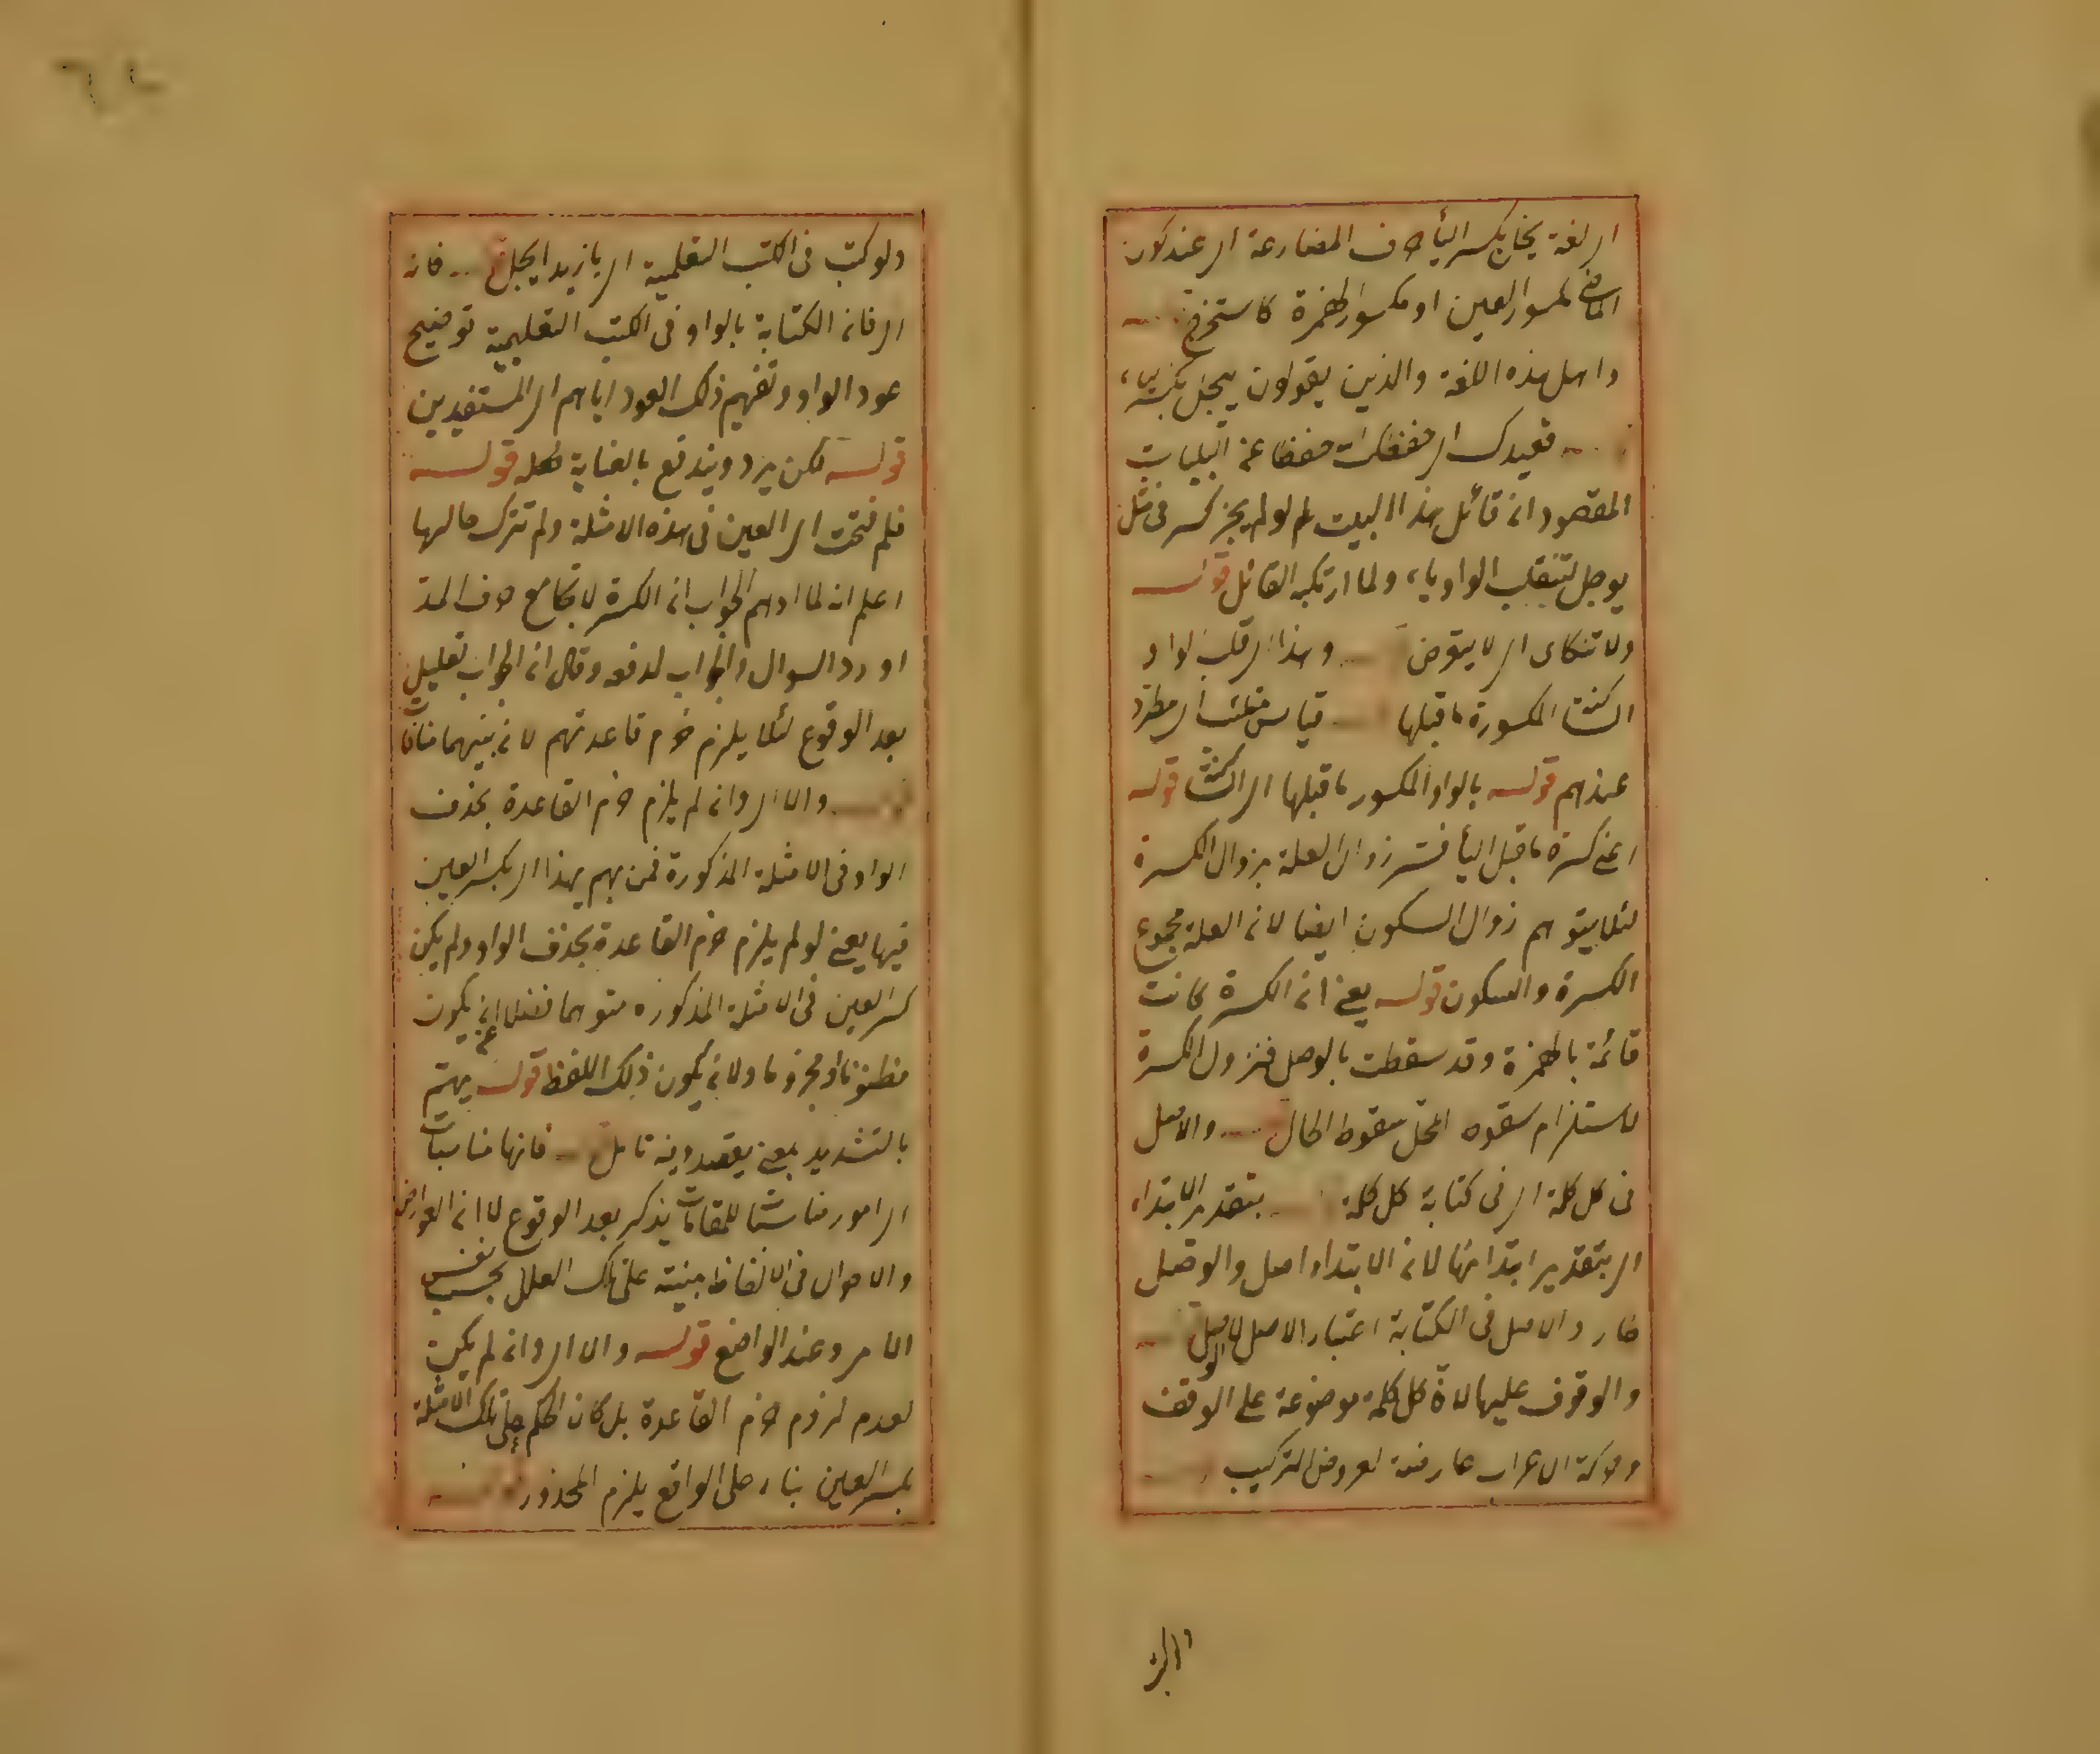 اى لغة يخاف بكسر الياء حرف المضارعة اى عند كون
الماضى مكسور العين او مكسور الهمزة كاستخرج
واهل هذه اللغة والذين يقولون ييجل بكسر
قعيدك اى حفظك الله حفظا عن البليات
المقصود ان قائل هذا البيت لم لو لم يجز كسر فى مثل
يوجل لتنقلب الواو ياء ولما ارتكبه القائل قوله
ولا تنكأى اى لا يتعرض وهذا اى قلب الواو
الساكنة المكسورة ما قبلها قياس اى مطرد
عندهم قوله بالواو المكسور ما قبلها اى الساكنة قوله
اعنى كسرة ما قبل الياء فسر زوال العلة بزوال الكسرة
لئلا يتوهم زوال السكون ايضا لان العلة مجموع
الكسرة والسكون قوله يعنى ان الكسرة كانت
قائمة بالهمزة وقد سقطت بالوصل فتزول الكسرة
لاستلزام سقوط المحل سقوط الحال والاصل
فى كل كلمة اى فى كتابة كل كلمة بتقدير الابتداء
اى بتقدير ابتدائها لان الابتداء اصل والوصل
طار والاصل فى الكتابة اعتبار الاصل
والوقوف عليها لان كل كلمة موضوعة على الوقف
وحركة الاعراب عارضة لعروض التركيب
ولو كتب فى الكتب التعليمية اى يا زيد ايجل فانه
اى فان الكتابة بالواو فى الكتب التعليمية توضيح
عود الواو وتفهيم ذلك العود اياهم اى المستفيدين
قوله لكن يرد ويندفع بالعناية قوله
فلم فتحت اى العين فى هذه الامثلة ولم تترك حالها
اعلم انه لما اوهم الجواب ان الكسرة لا تجامع حرف المد
اورد السوال والجواب لدفعه وقال ان الجواب تعليل
بعد الوقوع لئلا يلزم خرم قاعدتهم لان بينهما منافات
والا اى وان لم يلزم خرم القاعدة بحذف
الواو فى الامثلة المذكورة فمن يهم بهذا اى بكسر العين
فيها يعنى لو لم يلزم خرم القاعدة بحذف الواو ولم يكن
كسر العين فى الامثلة المذكورة متوهما فضلا عن ان يكون
مظنونا او مجزوما ولان يكون ذلك اللفظ قوله يهتم
بالتشديد بمعنى يقصد وفيه تامل فانها مناسبات
اى امور مناسبات للمقامات يذكر بعد الوقوع لا ان العوارض
والاحوال فى الالفاظ مبنية على تلك العلل بحسب نفس
الامر وعند الواضع قوله والا اى وان لم يكن
لعدم لزوم خرم القاعدة بل كان الحكم على تلك الامثلة
بكسر العين بناء على الواقع يلزم المحذور